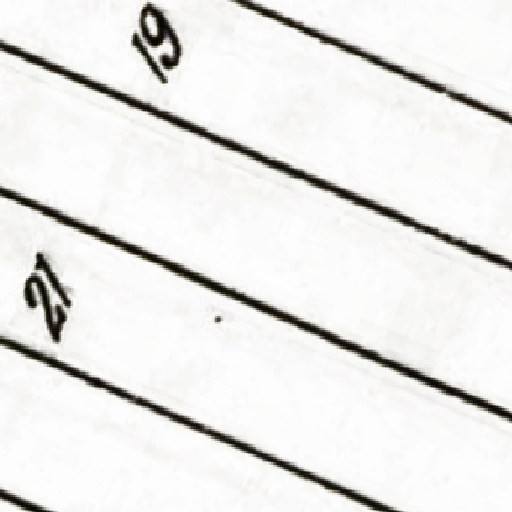 19
21